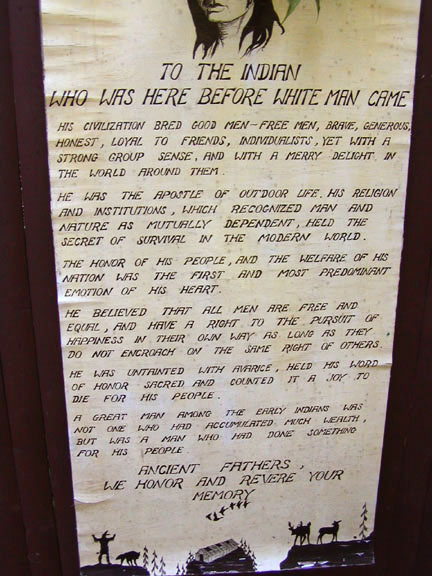 TO THE INDIAN
WHO WAS HERE BEFORE WHITE MAN CAME
HIS CIVILIZATION BRED GOOD MEN-FREE MEN, BRAVE, GENEROUS,
HONEST, LOYAL TO FRIENDS, INDIVIDUALISTS, YET WITH A
STRONG GROUP SENSE, AND WITH A MERRY DELIGHT IN
THE WORLD AROUND THEM.
HE WAS THE APOSTLE OF OUTDOOR LIFE. HIS RELIGION
AND INSTITUTIONS, WHICH RECOGNIZED MAN AND
NATURE AS MUTUALLY DEPENDENT, HELD THE
SECRET OF SURVIVAL IN THE MODERN WORLD.
THE HONOR OF HIS PEOPLE, AND THE WELFARE OF HIS
NATION WAS THE FIRST AND MOST PREDOMINANT
EMOTION OF HIS HEART.
HE BELIEVED THAT ALL MEN ARE FREE AND
EQUAL, AND HAVE A RIGHT TO THE PURSUIT OF
HAPPINESS IN THEIR OWN WAY AS LONG AS THEY
DO NOT ENCROACH ON THE SAME RIGHT OF OTHERS.
HE WAS UNTAINTED WITH AVARICE, HELD HIS WORD
OF HONOR SACRED AND COUNTED IT A JOY TO
DIE FOR HIS PEOPLE.
A GREAT MAN AMONG THE EARLY INDIANS WAS
NOT ONE WHO HAD ACCUMULATED MUCH WEALTH,
BUT WAS A MAN WHO HAD DONE SOMETHING
FOR HIS PEOPLE.
ANCIENT FATHERS,
WE HONOR AND REVERE YOUR
MEMORY